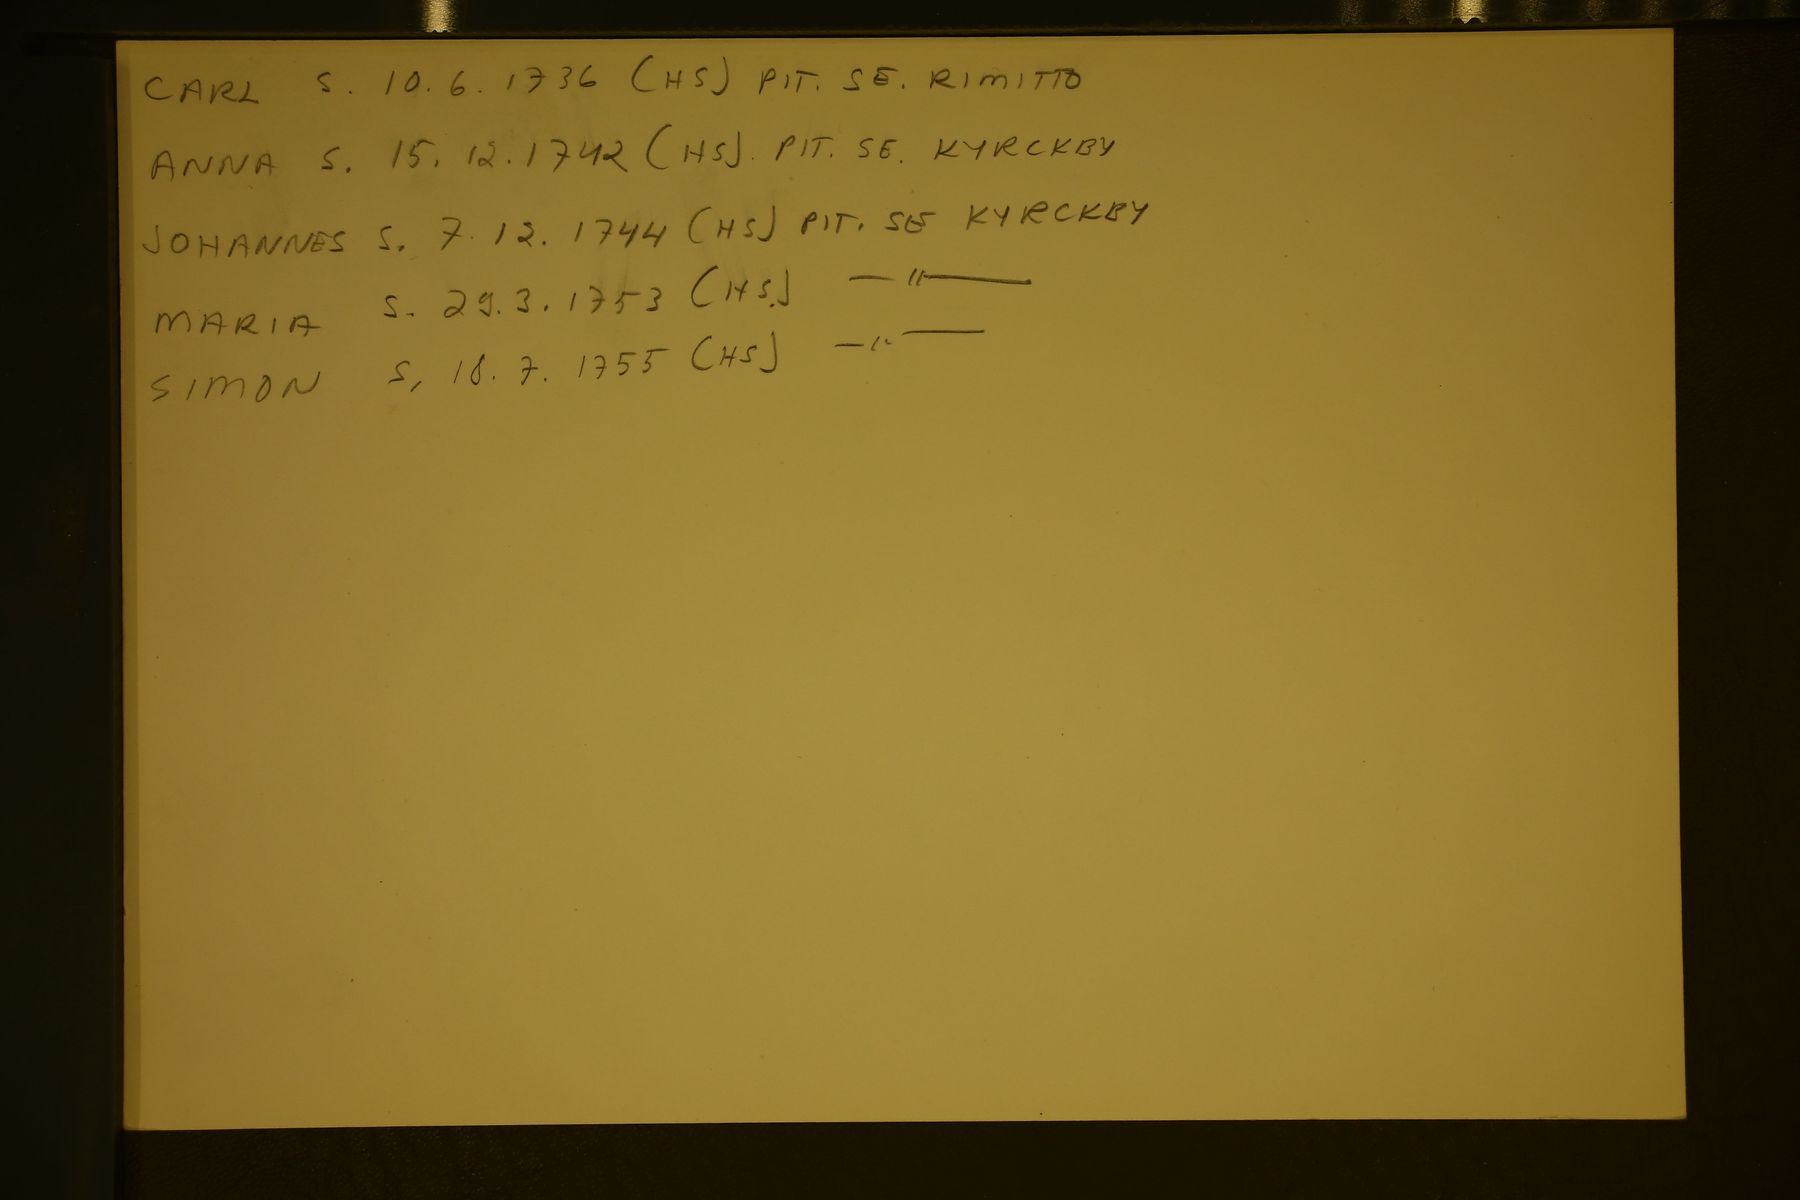 CARL S. 10.6.1736 (HS) PIT. SE. RIMITTO
ANNA S. 15.12.1742 (HS). PIT. SE. KYRCKBY
JOHANNES S. 7.12.1744 (HS) PIT. SE KYRCKBY
MARIA S. 29.3.1753 (HS) —"—
SIMON S, 18.7.1755 (HS) —"—